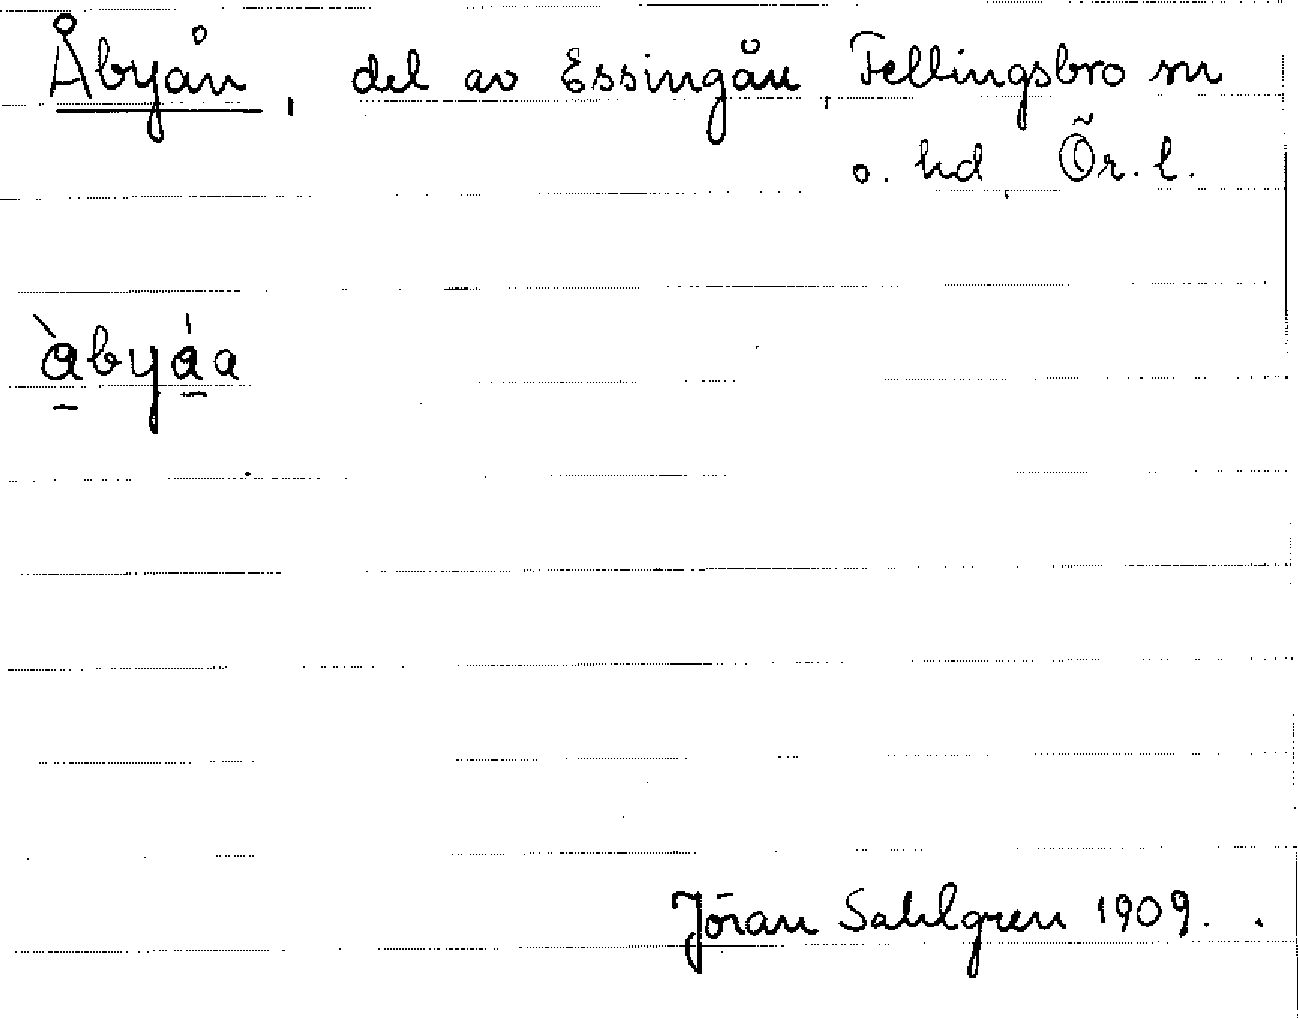 Åbyån, del av Essingån, Fellingsbro sn
o. hd, Ör. l.
àbyáa
Jöran Sahlgren 1909.